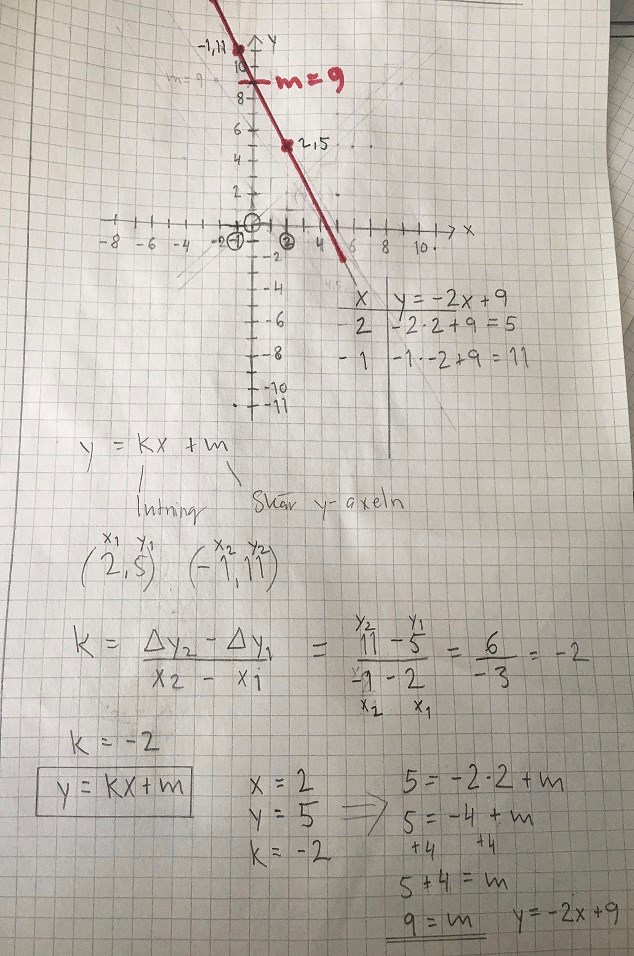 -1,11 y
10
m = 9 m = 9
8
6
2,5
4
2
-8 -6 -4 -2 -1 2 4 6 8 10 x
-2
-4
x y = -2x + 9
-6
2 -2·2 + 9 = 5
-8
-1 -1·-2 + 9 = 11
-10
-11
y = kx + m
Lutning Skär y-axeln
x1 y1 x2 y2
(2,5) (-1,11)
y2 y1
k = Δy2 - Δy1 / x2 - x1 = 11 - 5 / -1 - 2 = 6 / -3 = -2
x2 x1
k = -2
y = kx + m x = 2 5 = -2·2 + m
y = 5 ⇒ 5 = -4 + m
k = -2 +4 +4
5 + 4 = m
9 = m y = -2x + 9